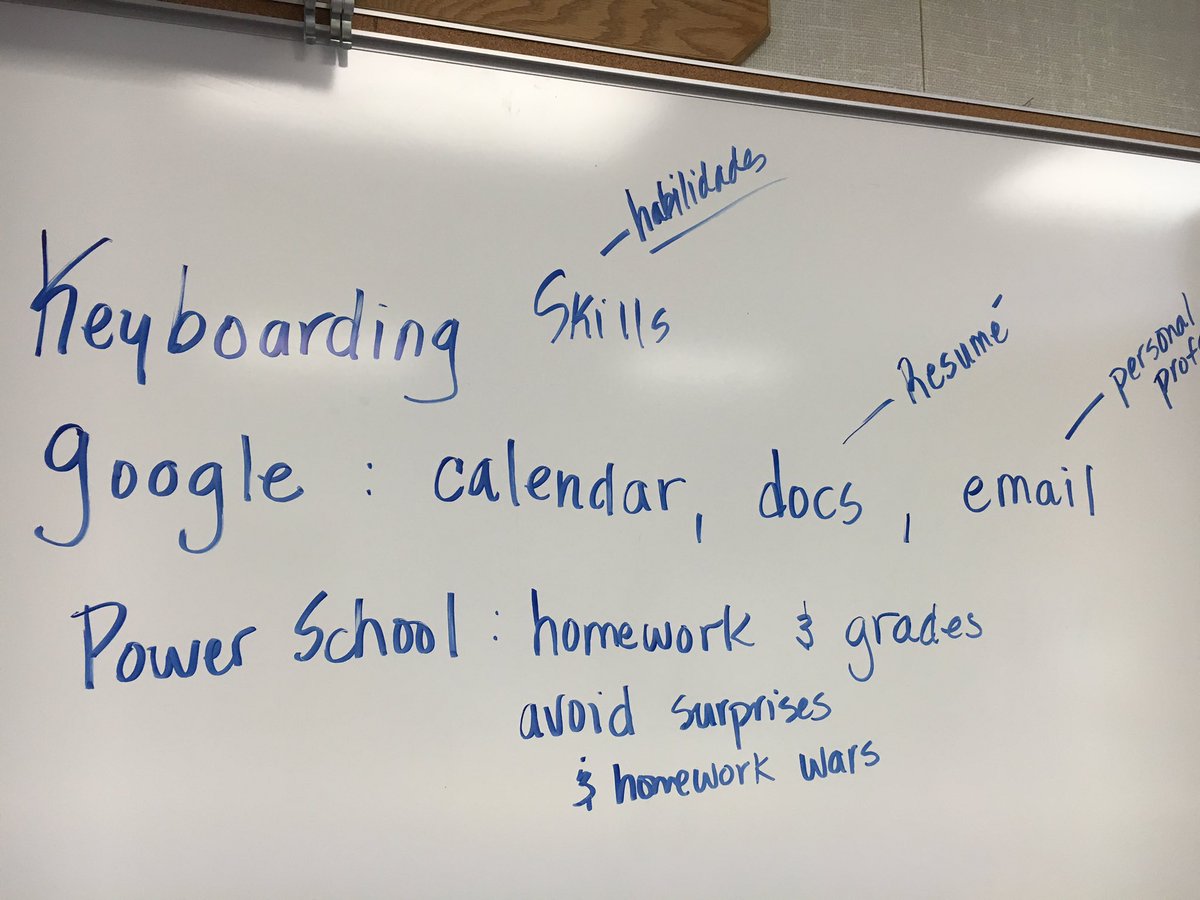 habilidades
Keyboarding Skills
Resumé
personal
google : calendar, docs, email
Power School : homework & grades
avoid surprises
& homework wars